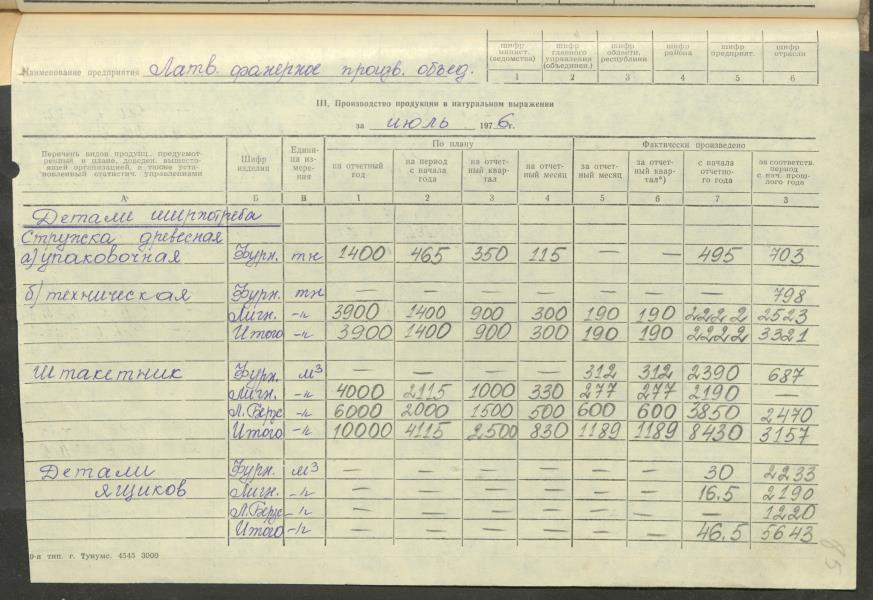 шифр минист. (ведомства) шифр главного управления (объединен.) шифр области, республики шифр района шифр предприят. шифр отрасли
Наименование предприятия Латв. фанерное произв. объед.
1 2 3 4 5 6
III. Производство продукции в натуральном выражении
за июль 1976г.
Перечень видов продукц., предусмотренный в плане, доведен. вышестоящей организацией, а также установленный статистич. управлениями Шифр изделия Единица измерения По плану Фактически произведено
на отчетный год на период с начала года на отчетный квартал на отчетный месяц за отчетный месяц за отчетный квартал*) с начала отчетного года за соответств. период с нач. прошлого года
А Б В 1 2 3 4 5 6 7 8
Детали ширпотреба
Стружка древесная
а) упаковочная Фурн. тн 1400 465 350 115 — — 495 703
б) техническая Фурн. тн — — — — — — — 798
Лигн. -н 3900 1400 900 300 190 190 2222 2523
Итого -н 3900 1400 900 300 190 190 2222 3321
Штакетник Фурн. м³ — — — — 312 312 2390 687
Лигн. -н 4000 2115 1000 330 277 277 2190 —
Л.Берзс -н 6000 2000 1500 500 600 600 3850 2470
Итого -н 10000 4115 2500 830 1189 1189 8430 3157
Детали Фурн. м³ — — — — — — 30 2233
ящиков Лигн. -н — — — — — — 16.5 2190
Л.Берзс -н — — — — — — — 1220
Итого -н — — — — — — 46.5 5643
-я тип. г. Тукумс. 4545 3000
85